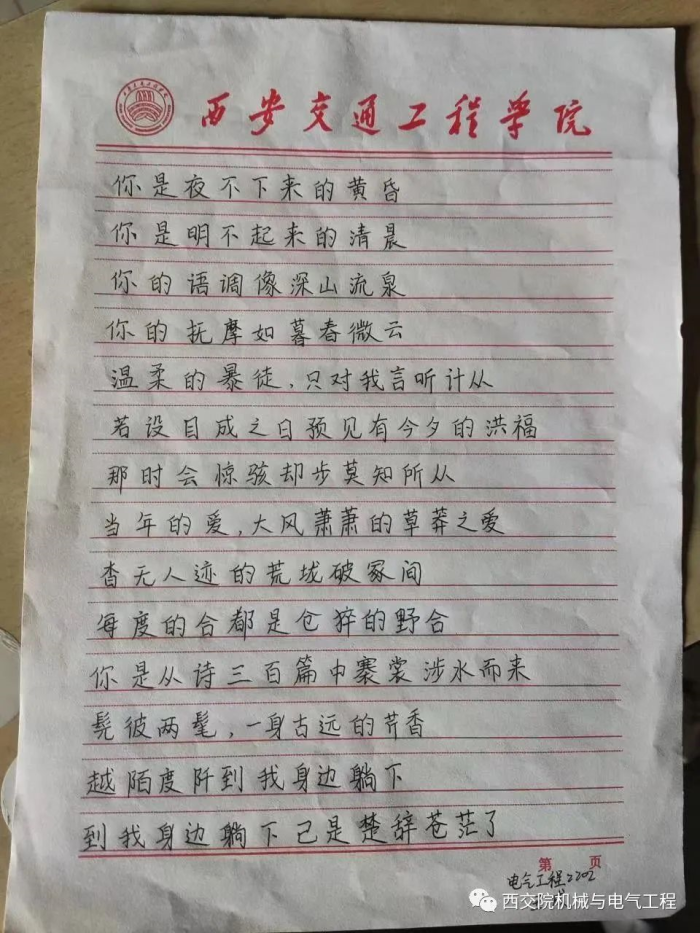 西安交通工程学院
你是夜不下来的黄昏
你是明不起来的清晨
你的语调像深山流泉
你的抚摩如暮春微云
温柔的暴徒,只对我言听计从
若设目成之日预见有今夕的洪福
那时会惊骇却步莫知所从
当年的爱,大风萧萧的草莽之爱
杳无人迹的荒垅破冢间
每度的合都是仓猝的野合
你是从诗三百篇中褰裳涉水而来
髧彼两髦,一身古远的芹香
越陌度阡到我身边躺下
到我身边躺下已是楚辞苍茫了
第 页
电气工程2202
西交院机械与电气工程